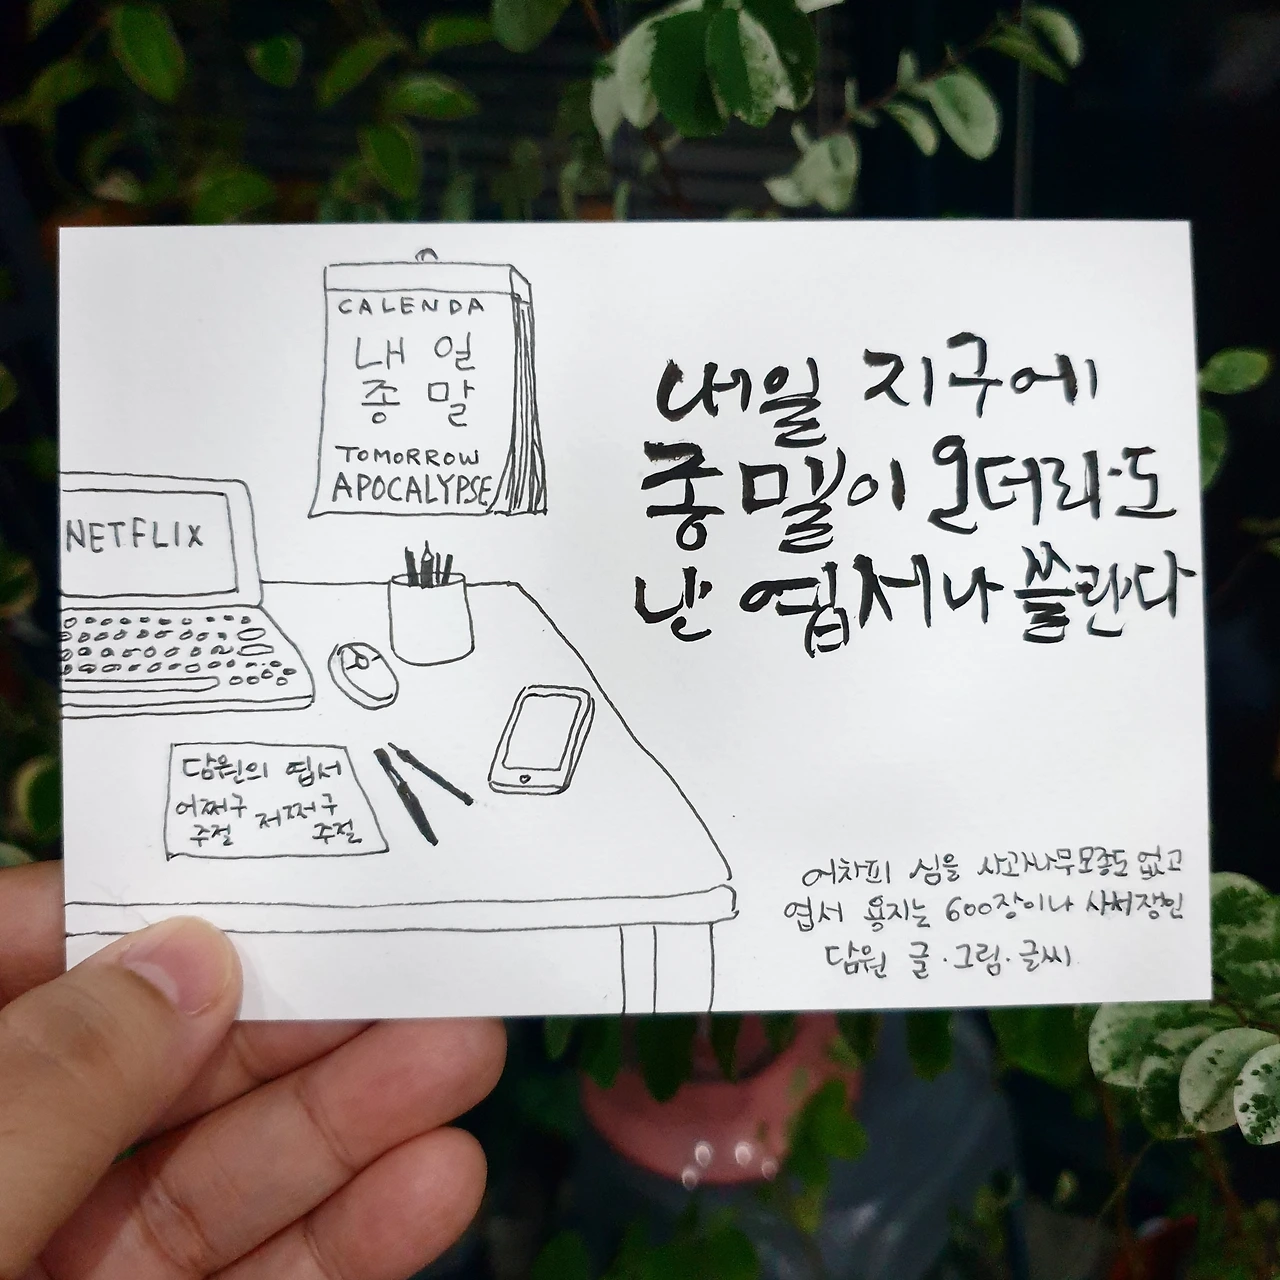 CALENDA
내일
종말
TOMORROW
APOCALYPSE
NETFLIX
담원의 엽서
어쩌구 저쩌구
주절 주절
내일 지구에
종말이 온더라도
난 엽서나 쓸란다
어차피 심을 사과나무모종도 없고
엽서 용지는 600장이나 사서쟁인
담원 글·그림·글씨